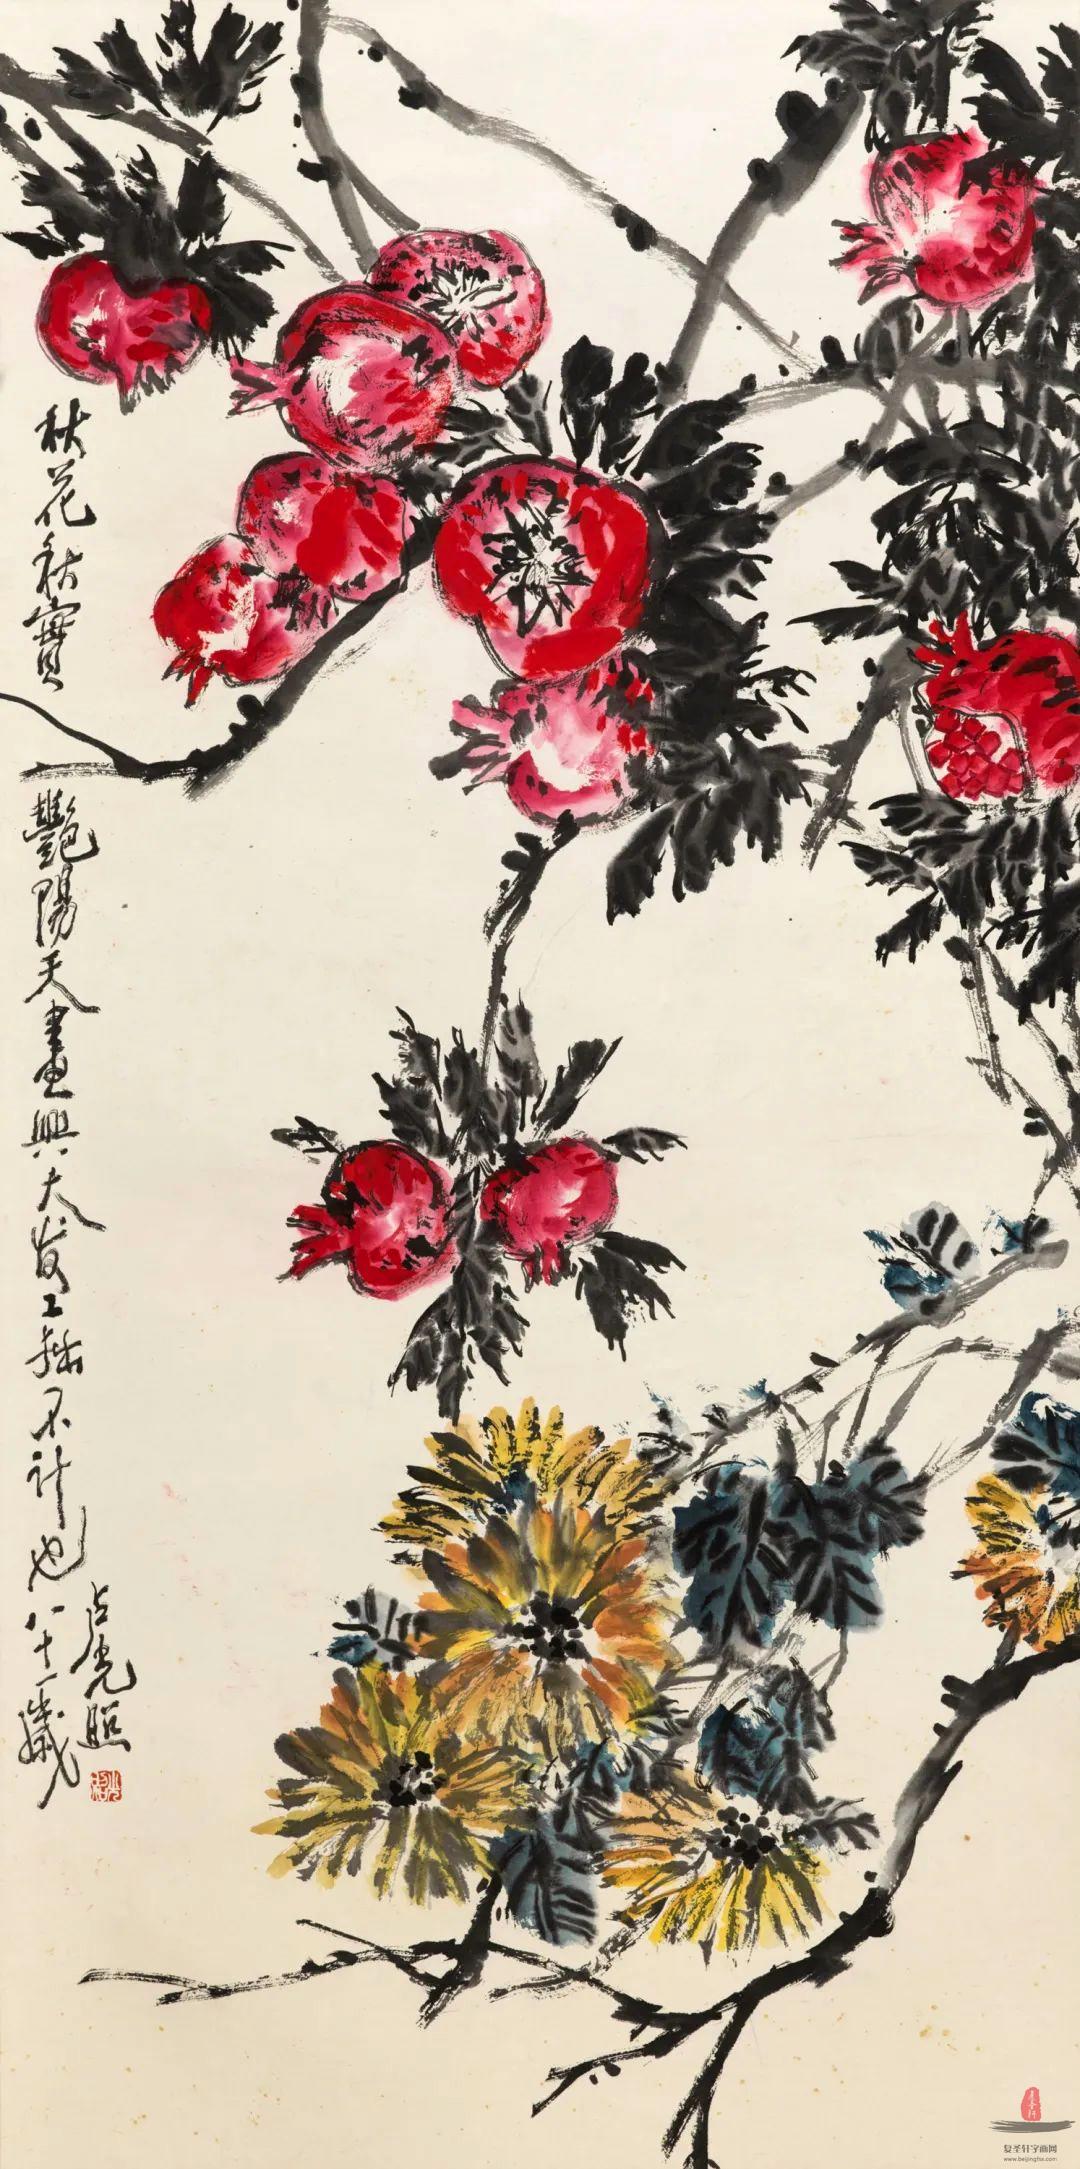 秋花秋實
艷陽天畫興大发工拙不计也
八十一歲
占光照
复圣轩字画网
www.beijingfsx.com